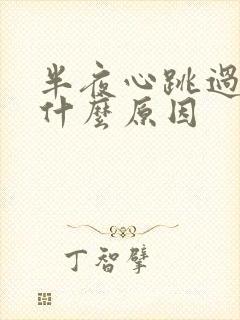 半夜心跳過
什麼原因
丁智擘